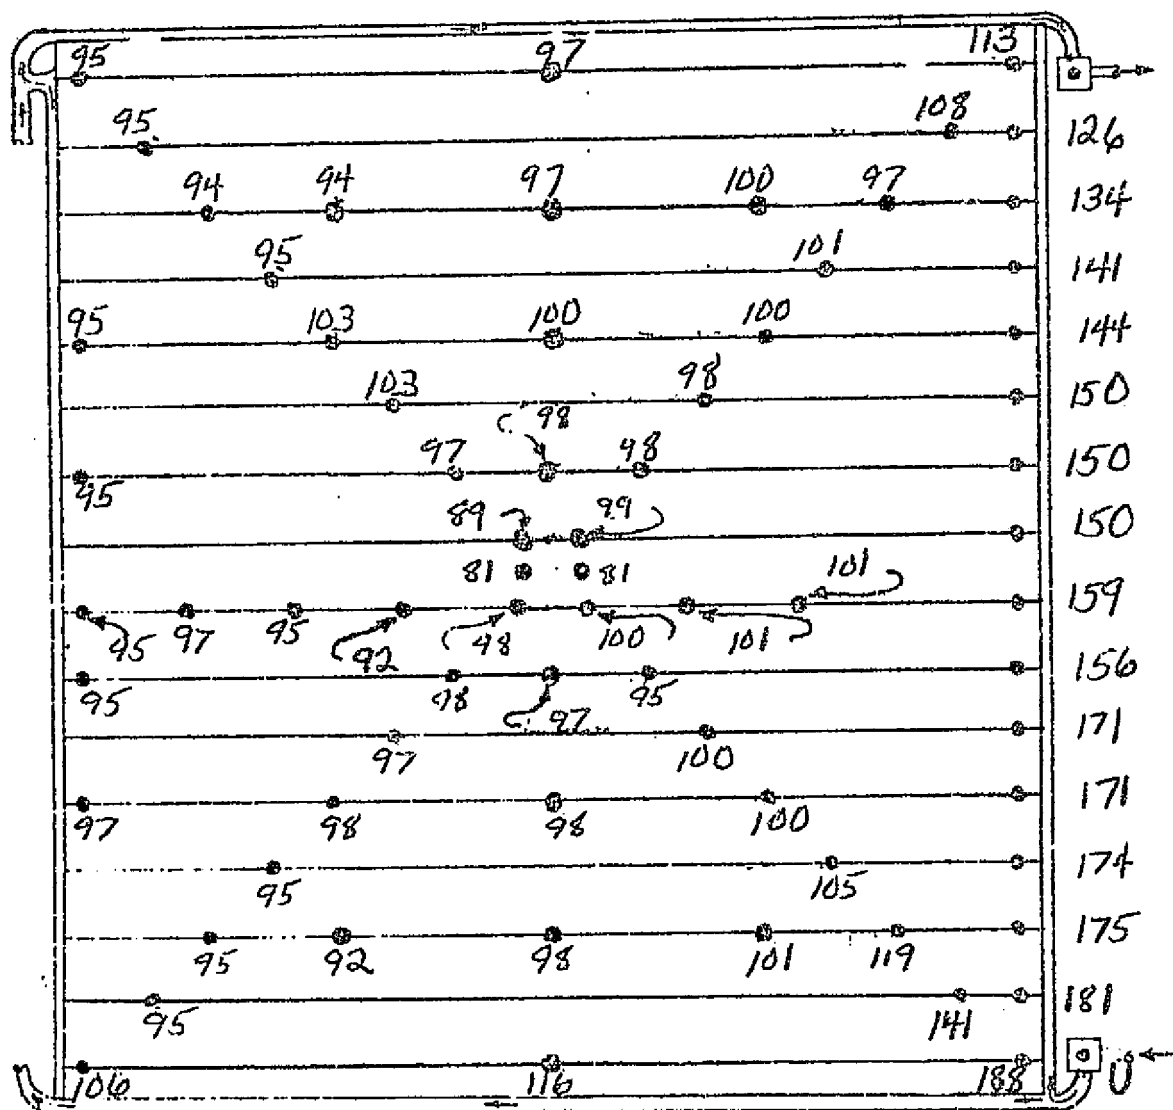 95 97 113
95 108 126
94 94 97 100 97 134
95 101 141
95 103 100 100 144
103 98 150
98
97 98 150
95
89 99 150
81 81
101
159
95 97 95 92 98 100 101
156
95 98 97 95
171
97 100
171
97 98 98 100
174
95 105
175
95 92 98 101 119
181
95 141
106 116 188